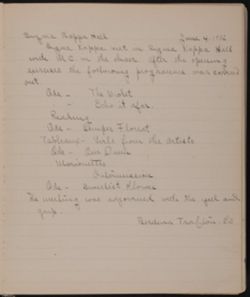 Sigma Kappa Hall June 4, 1906
Sigma Kappa met in Sigma Kappa Hall
with M.C. in the chair after the opening
exercises the following programme was carried
out
Ode - The Violet
" - Echo it afar.
Reading
Ode - Semper Floreat
Tableaux - Girls from the Artists
Ode -
Marionette
Ode - Sweetest Flower
The meeting was adjourned with the yell and
grip.